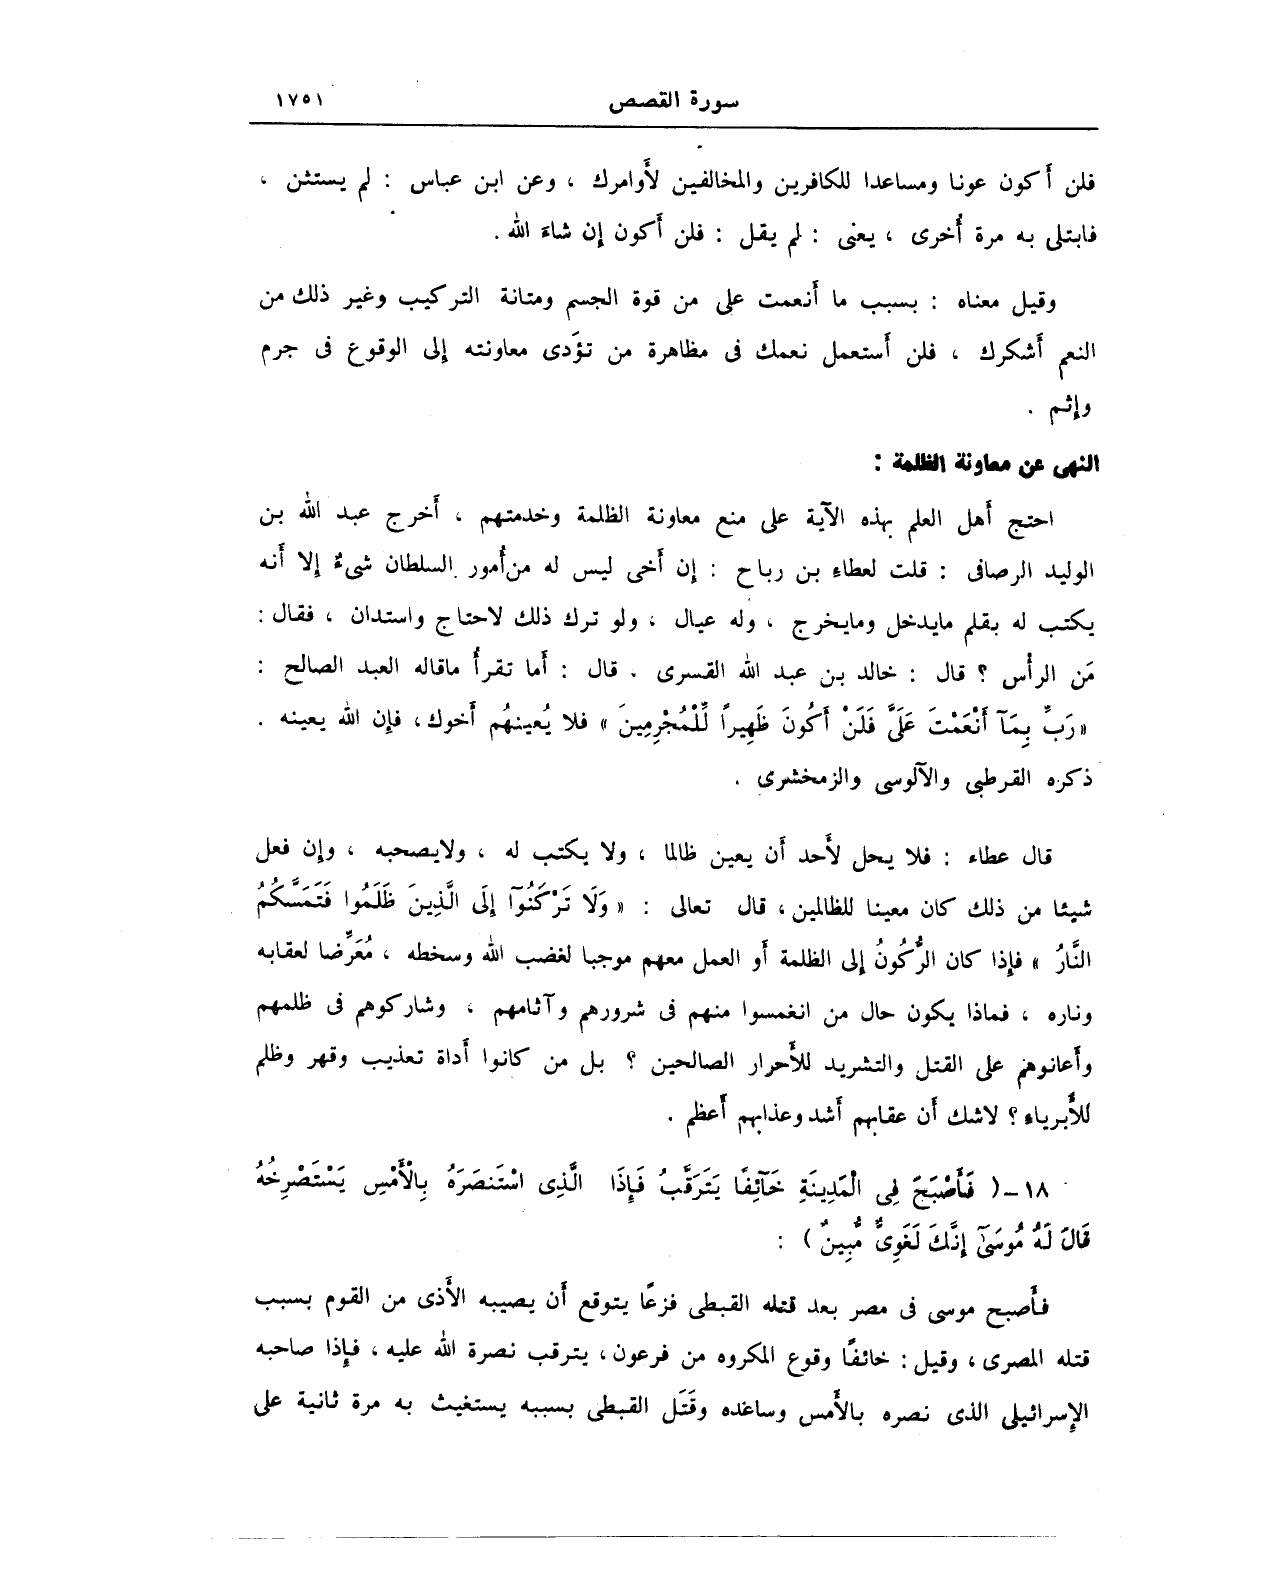 سورة القصص ١٧٥١
فلن أكون عونا ومساعدا للكافرين والمخالفين لأوامرك ، وعن ابن عباس : لم يستثن ،
فابتلى به مرة أُخرى ، يعنى : لم يقل : فلن أكون إن شاءَ الله .
وقيل معناه : بسبب ما أنعمت على من قوة الجسم ومتانة التركيب وغير ذلك من
النعم أشكرك ، فلن أستعمل نعمك فى مظاهرة من تؤَدى معاونته إلى الوقوع فى جرم
وإثم .
النهى عن معاونة الظلمة :
احتج أهل العلم بهذه الآية على منع معاونة الظلمة وخدمتهم ، أخرج عبد الله بن
الوليد الرصافى : قلت لعطاء بن رباح : إن أخى ليس له من أُمور السلطان شىءٌ إلا أنه
يكتب له بقلم مايدخل ومايخرج ، وله عيال ، ولو ترك ذلك لاحتاج واستدان ، فقال :
مَن الرأْس ؟ قال : خالد بن عبد الله القسرى . قال : أما تقرأُ ماقاله العبد الصالح :
« رَبِّ بِمَآ أَنْعَمْتَ عَلَىَّ فَلَنْ أَكُونَ ظَهِيراً لِّلْمُجْرِمِينَ » فلا يُعينهُم أخوك، فإن الله يعينه .
ذكره القرطبى والآلوسى والزمخشرى .
قال عطاء : فلا يحل لأحد أن يعين ظالما ، ولا يكتب له ، ولايصحبه ، وإن فعل
شيئا من ذلك كان معينا للظالمين ، قال تعالى : « وَلَا تَرْكَنُوآ إِلَى الَّذِينَ ظَلَمُوا فَتَمَسَّكُمُ
النَّارُ » فإذا كان الرُّكُونُ إلى الظلمة أو العمل معهم موجبا لغضب الله وسخطه ، مُعَرِّضا لعقابه
وناره ، فماذا يكون حال من انغمسوا منهم فى شرورهم وآثامهم ، وشاركوهم فى ظلمهم
وأعانوهم على القتل والتشريد للأحرار الصالحين ؟ بل من كانوا أداة تعذيب وقهر وظلم
للأَبرياء ؟ لاشك أن عقابهم أشد وعذابهم أعظم .
١٨ - ( فَأَصْبَحَ فِى الْمَدِينَةِ خَآئِفًا يَتَرَقَّبُ فَإِذَا الَّذِى اسْتَنصَرَهُ بِالْأَمْسِ يَسْتَصْرِخُهُ
قَالَ لَهُ مُوسَىٓ إِنَّكَ لَغَوِىٌّ مُّبِينٌ ) :
فأصبح موسى فى مصر بعد قتله القبطى فزعًا يتوقع أن يصيبه الأذى من القوم بسبب
قتله المصرى ، وقيل : خائفًا وقوع المكروه من فرعون، يترقب نصرة الله عليه ، فإذا صاحبه
الإسرائيلى الذى نصره بالأمس وساعده وقَتَل القبطى بسببه يستغيث به مرة ثانية على